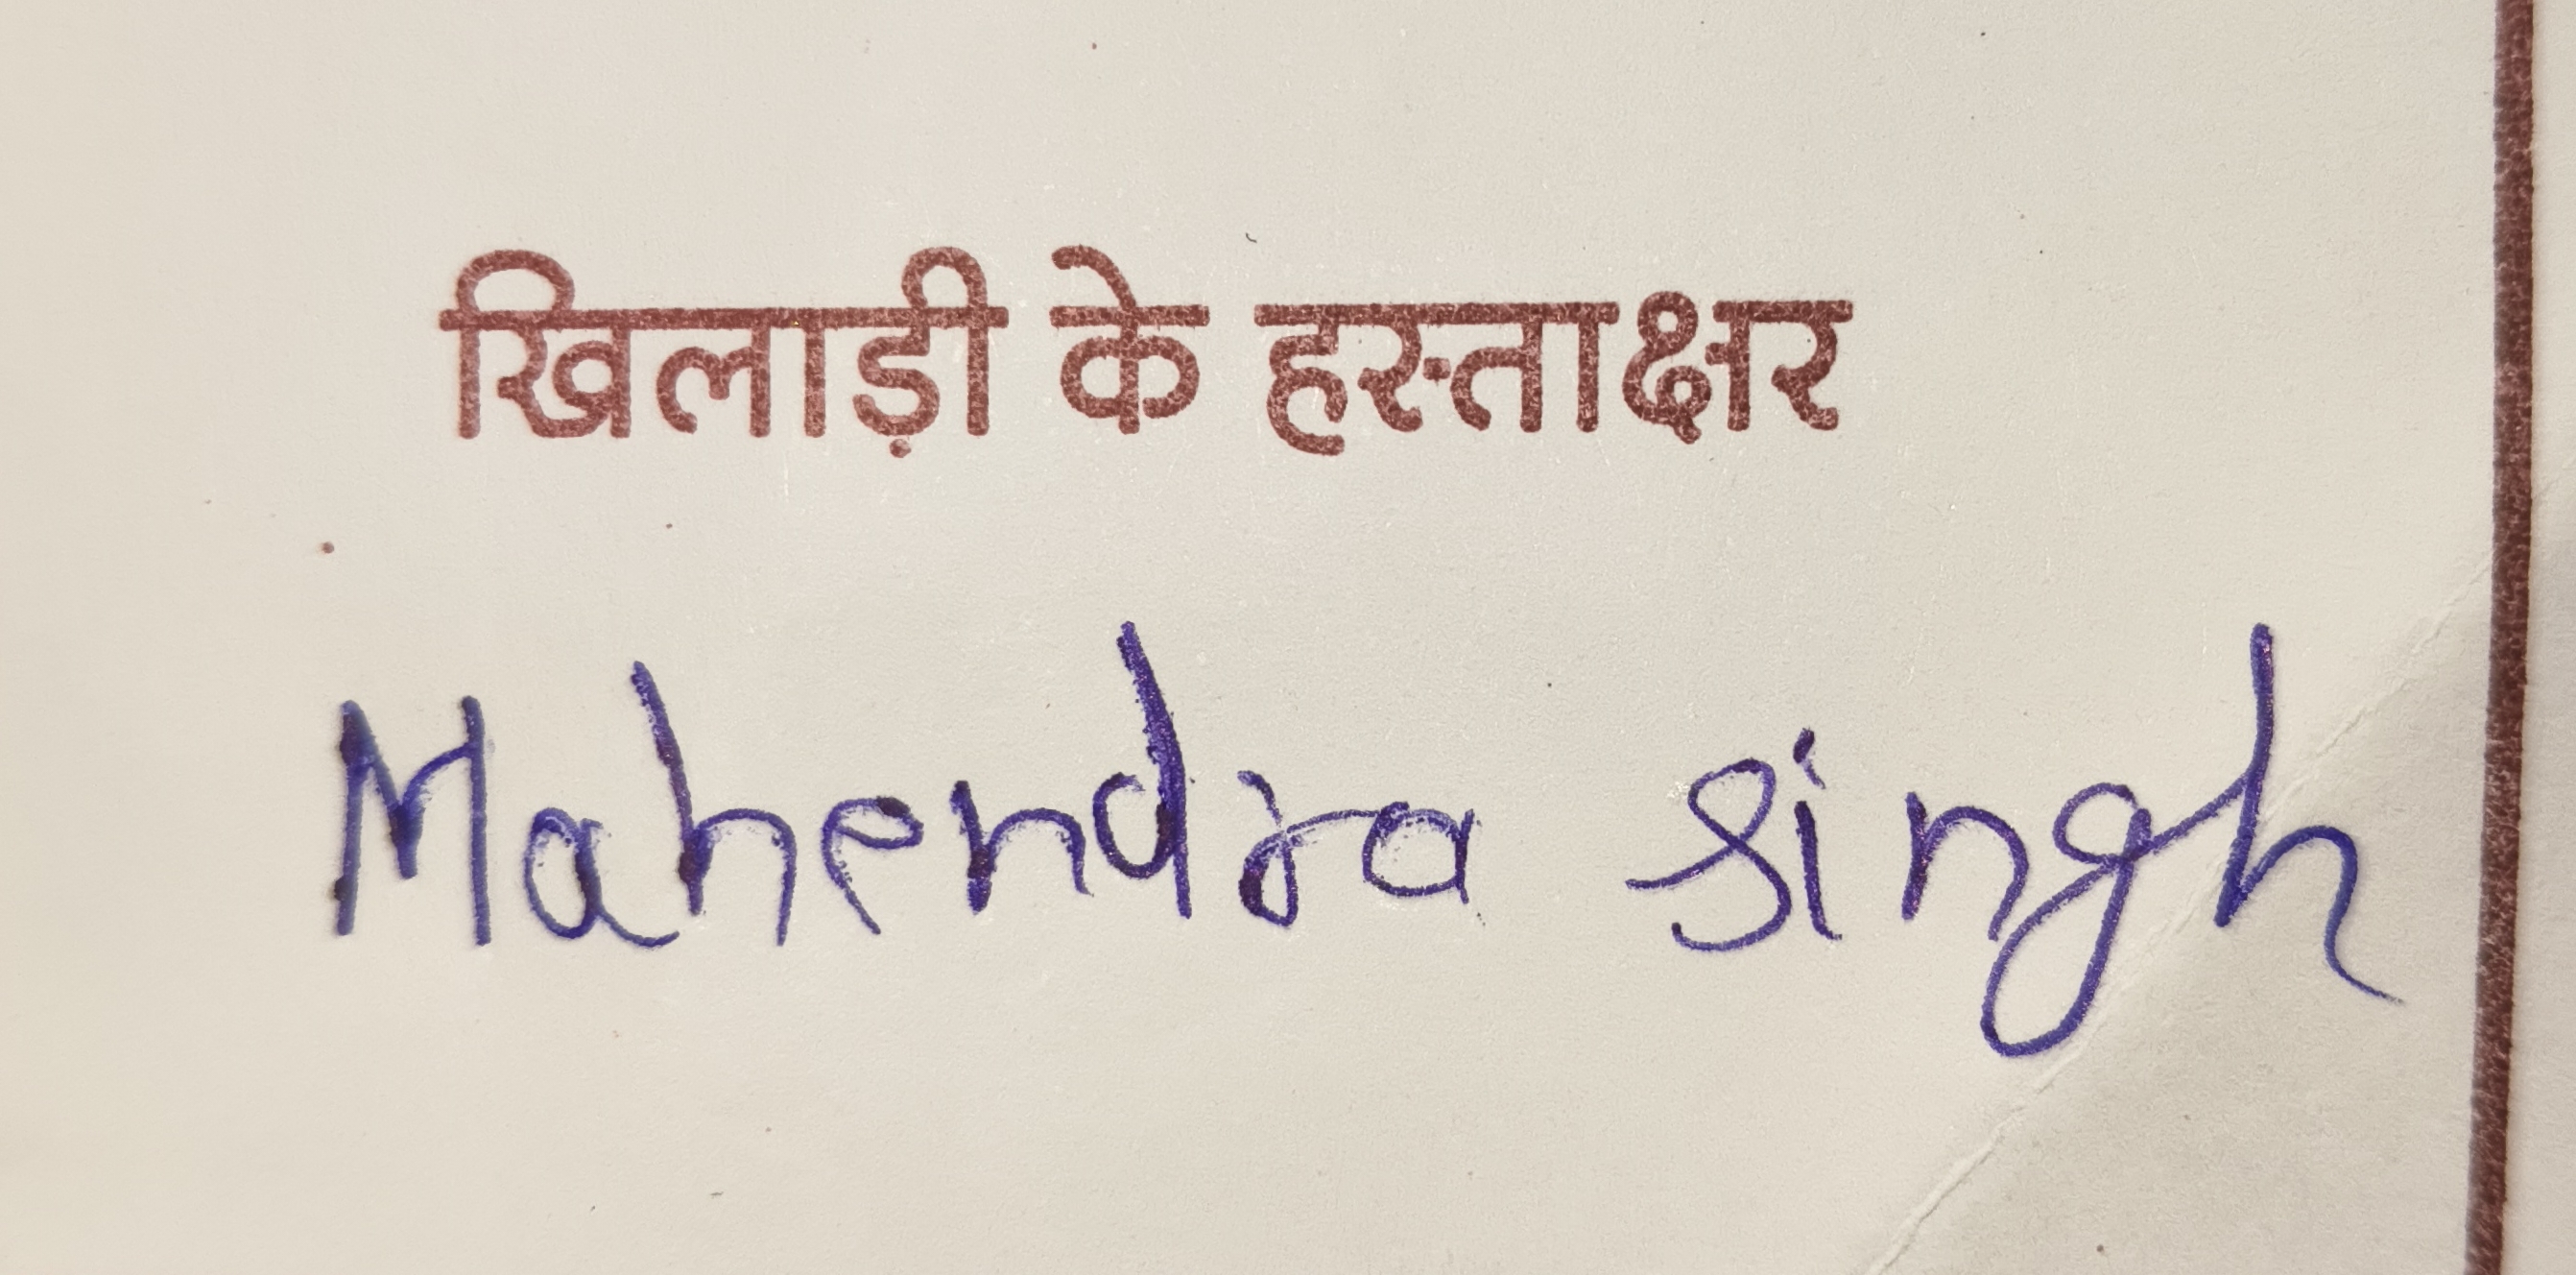 खिलाड़ी के हस्ताक्षर
Mahendra singh